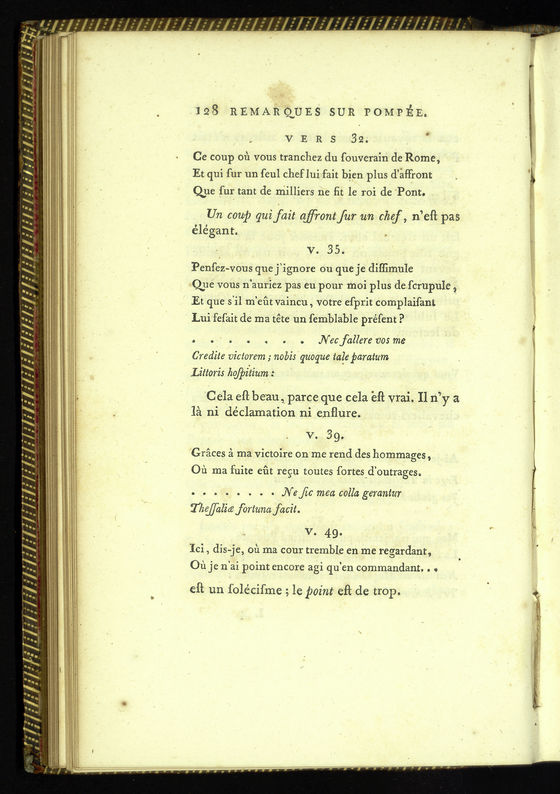 128 REMARQUES SUR POMPÉE.
VERS 32.
Ce coup où vous tranchez du ſouverain de Rome,
Et qui ſur un ſeul chef lui fait bien plus d'affront
Que ſur tant de milliers ne fit le roi de Pont.
Un coup qui fait affront ſur un chef, n'eſt pas
élégant.
V. 35.
Penſez-vous que j'ignore ou que je diſſimule
Que vous n'auriez pas eu pour moi plus de ſcrupule,
Et que s'il m'eût vaincu, votre eſprit complaiſant
Lui feſait de ma tête un ſemblable préſent?
. . . . . . . Nec fallere vos me
Credite victorem; nobis quoque tale paratum
Littoris hoſpitium:
Cela eſt beau, parce que cela eſt vrai. Il n'y a
là ni déclamation ni enflure.
V. 39.
Grâces à ma victoire on me rend des hommages,
Où ma fuite eût reçu toutes ſortes d'outrages.
. . . . . . . . Ne ſic mea colla gerantur
Theſſaliæ fortuna facit.
V. 49.
Ici, dis-je, où ma cour tremble en me regardant,
Où je n'ai point encore agi qu'en commandant...
eſt un ſoléciſme; le point eſt de trop.